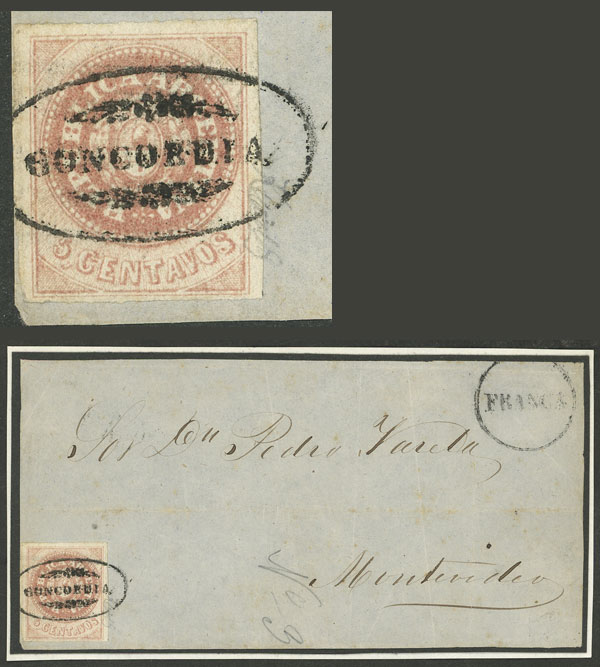 REPUBLICA ARGENTINA
CONCORDIA.
5 CENTAVOS
FRANCA
Sor Dn Pedro Varela
Montevideo
No 3
CONCORDIA.
5 CENTAVOS